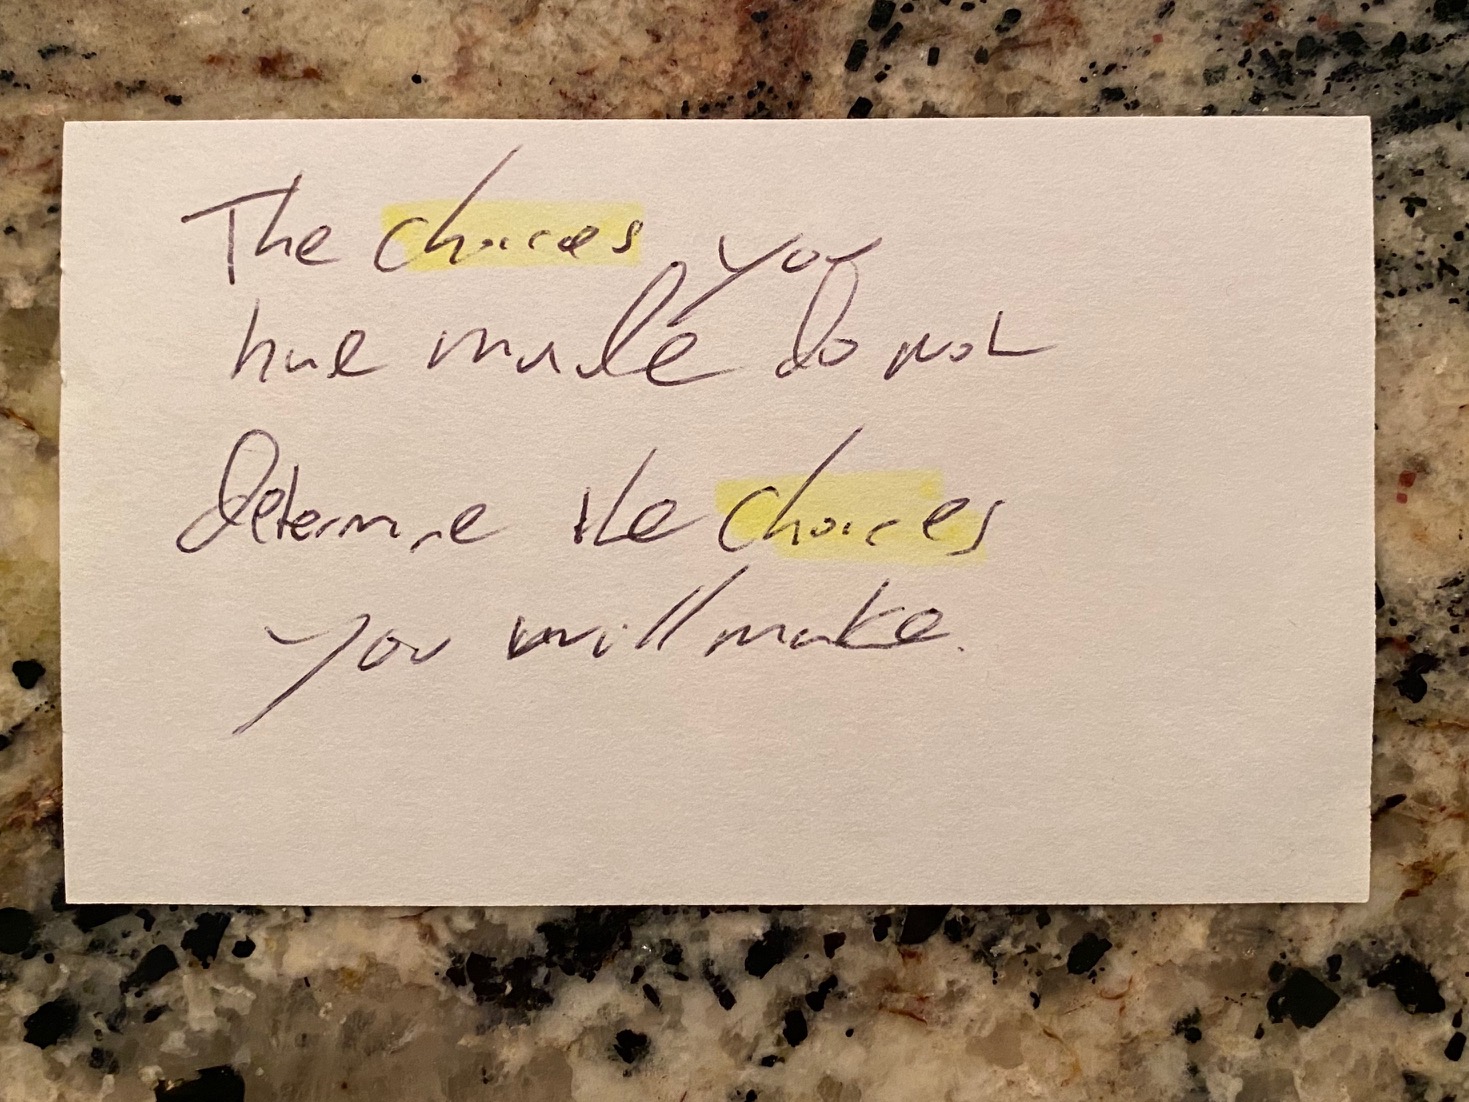 The choices you
have made do not
Determine the choices
you will make.